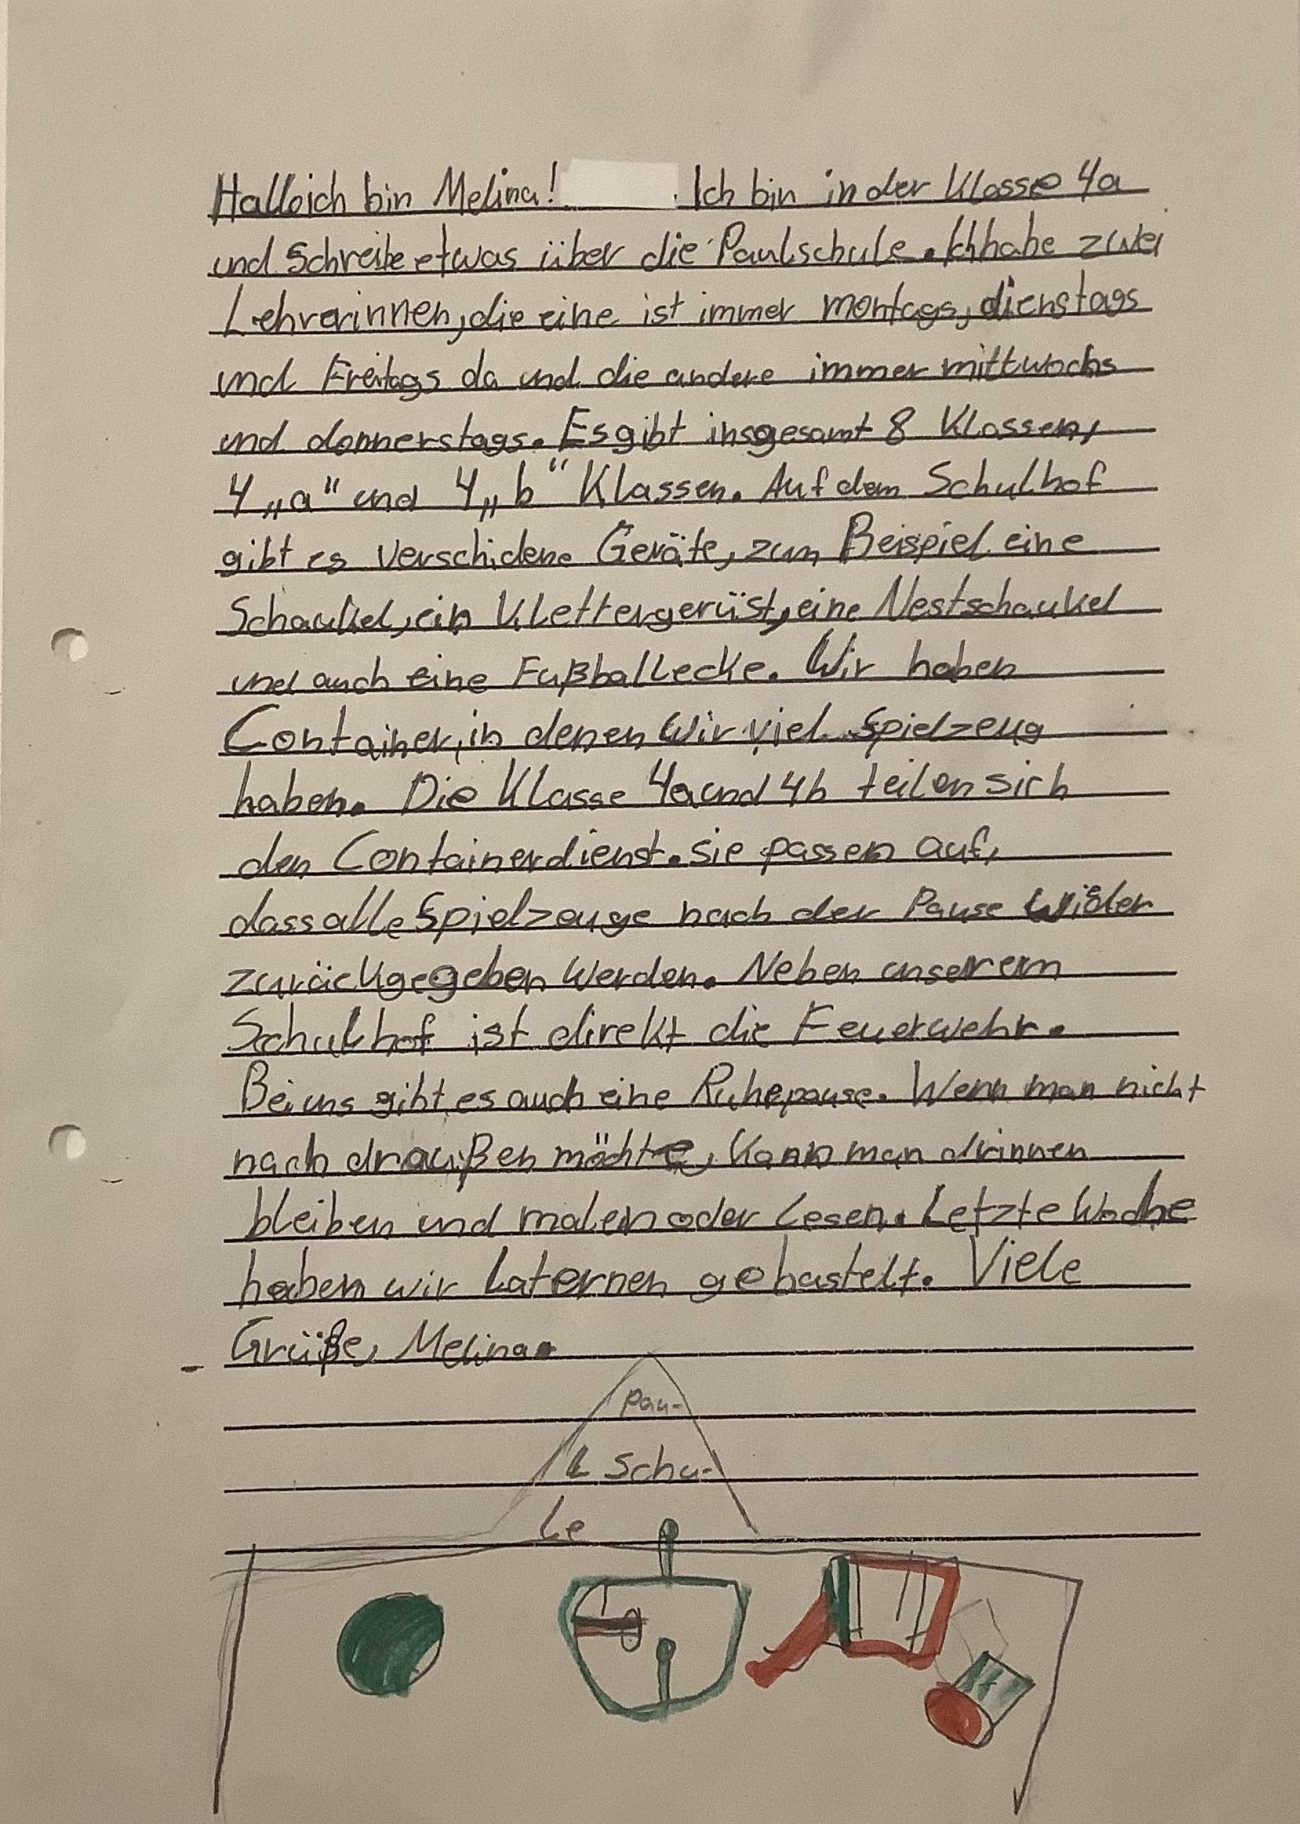 Hallo ich bin Melina! Ich bin in der Klasse 4a
und schreibe etwas über die Paulschule. Ich habe zwei
Lehrerinnen, die eine ist immer montags, dienstags
und Freitags da und die andere immer mittwochs
und donnerstags. Es gibt insgesamt 8 Klassen,
4 „a" und 4 „b" Klassen. Auf dem Schulhof
gibt es verschidene Geräte, zum Beispiel eine
Schaukel, ein Klettergerüst, eine Nestschaukel
und auch eine Fußballecke. Wir haben
Container, in denen wir viel Spielzeug
haben. Die Klasse 4a und 4b teilen sich
den Containerdienst. Sie passen auf,
dass alle Spielzeuge nach der Pause wider
zurückgegeben werden. Neben unserem
Schulhof ist direkt die Feuerwehr.
Bei uns gibt es auch eine Ruhepause. Wenn man nicht
nach draußen möchte, kann man drinnen
bleiben und malen oder lesen. Letzte Woche
haben wir Laternen gebastelt. Viele
Grüße, Melina.
Pau-
l Schu-
le